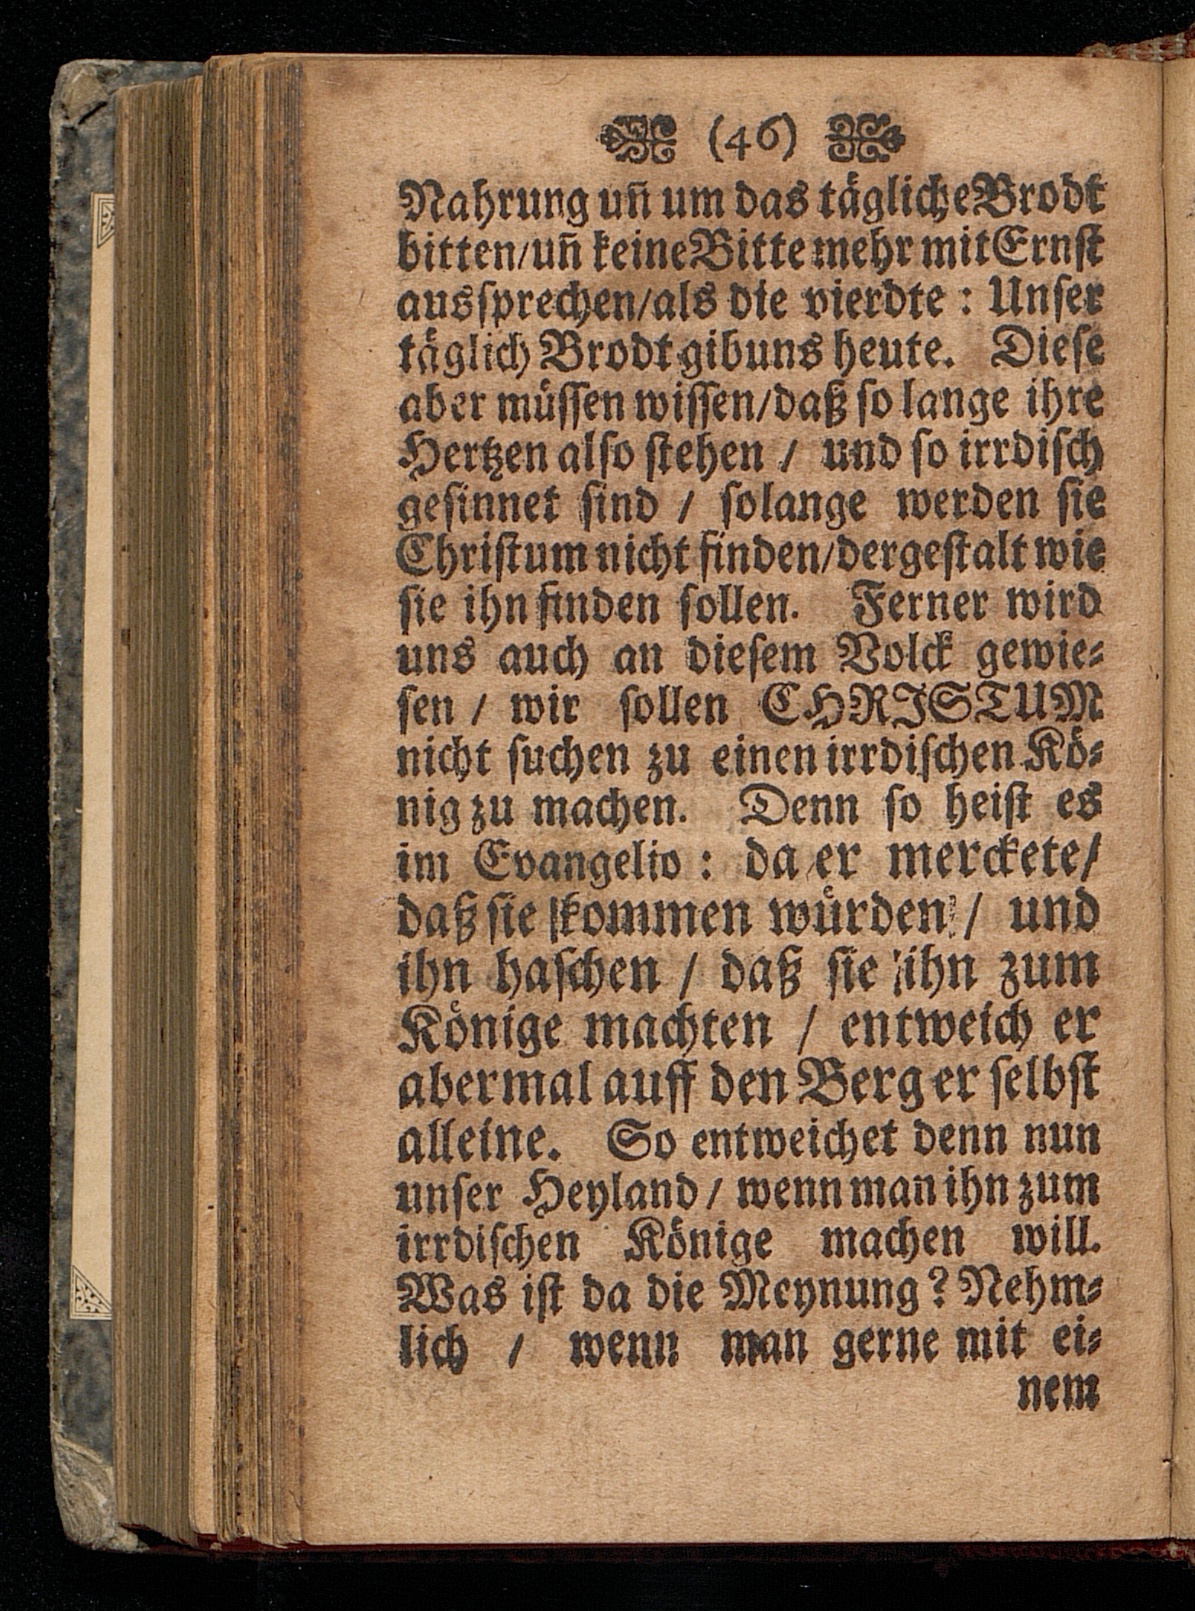 (46)
Nahrung uñ um das tägliche Brodt
bitten/uñ keine Bitte mehr mit Ernst
aussprechen/als die vierdte : Unser
täglich Brodt gib uns heute. Diese
aber müssen wissen/daß so lange ihre
Hertzen also stehen / und so irrdisch
gesinnet sind / solange werden sie
Christum nicht finden/dergestalt wie
sie ihn finden sollen. Ferner wird
uns auch an diesem Volck gewie-
sen / wir sollen CHRISTUM
nicht suchen zu einen irrdischen Kö-
nig zu machen. Denn so heist es
im Evangelio : da er merckete/
daß sie kommen würden / und
ihn haschen / daß sie ihn zum
Könige machten / entweich er
abermal auff den Berg er selbst
alleine. So entweichet denn nun
unser Heyland / wenn man ihn zum
irrdischen Könige machen will.
Was ist da die Meynung? Nehm-
lich / wenn man gerne mit ei-
nem